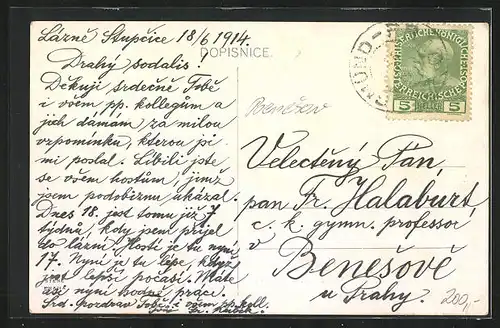 Lázně Stupčice 18/6 1914.
DOPISNICE.
Drahý sodalis!
Děkuji srdečně Tobě
i všem pp. kollegům a
jich dámám za milou
vzpomínku, kterou jsi
mi poslal. Líbili jste
se všem hostům, jimž
jsem podobiznu ukázal.
Dnes 18. jest tomu již 7
týdnů, kdy jsem přijel
do lázní. Hostí je tu nyní
17. Nyní je tu lépe, když
jest lepší počasí. Máte
již nyní hodně práci.
Srd. pozdrav Tobě i všem pp. koll.
Benešov
GMÜND-PR
5 HELLER 5
Velectěný Pán,
pan Fr. Halaburt,
c. k. gymn. professor
v
Benešově
u Prahy.
200,-